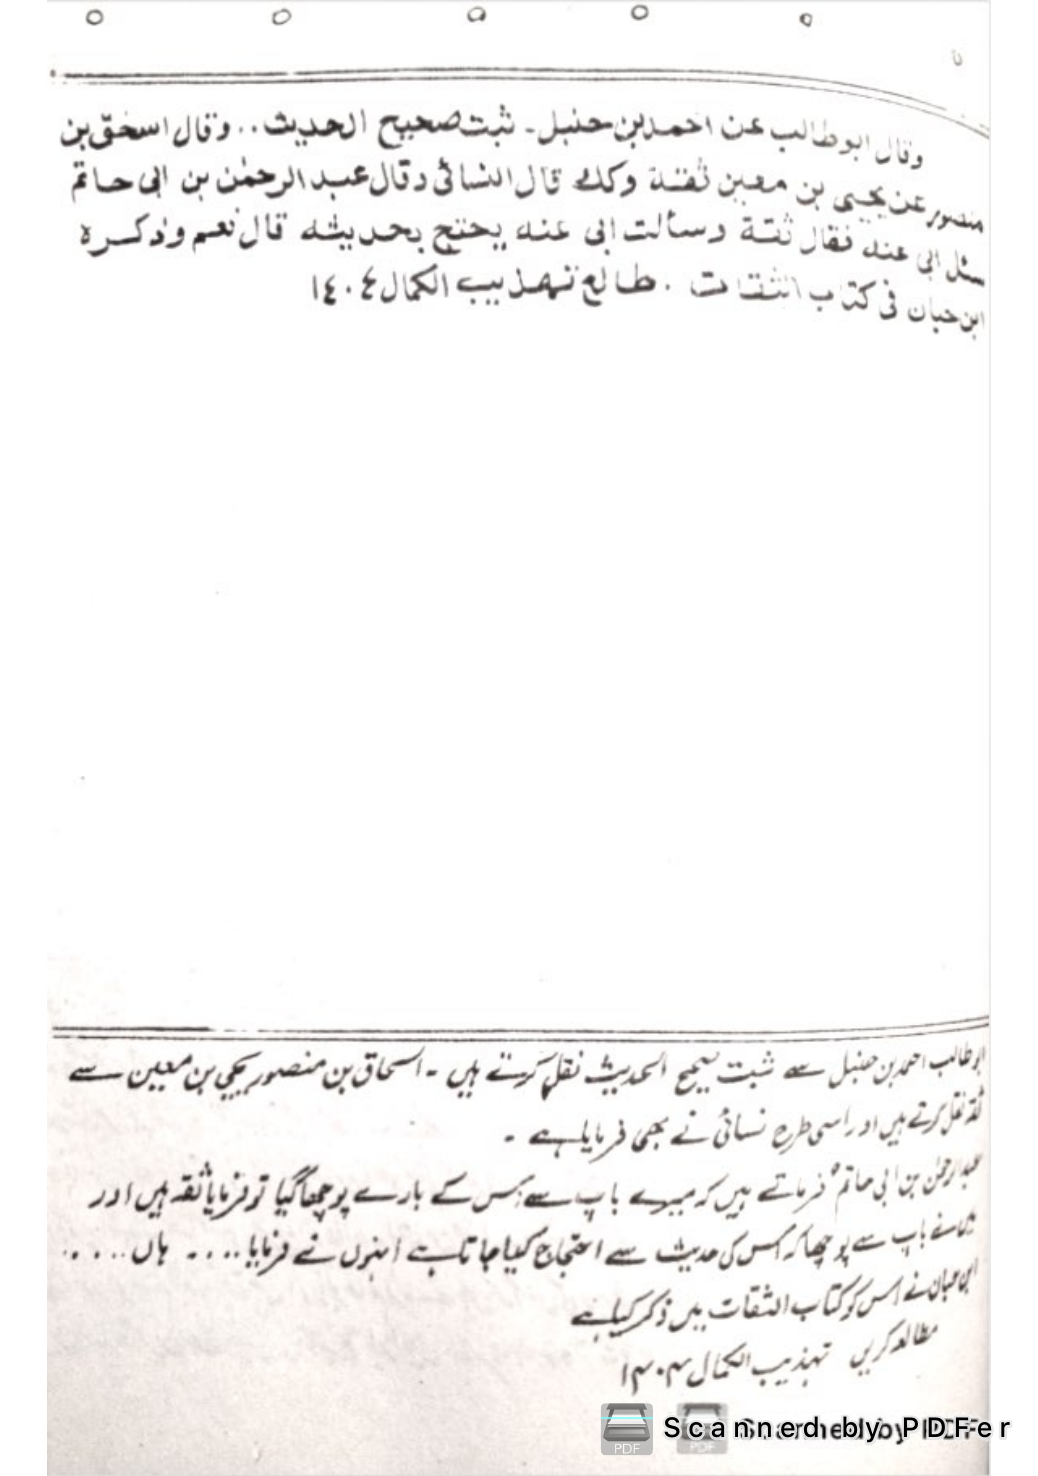 وقال ابوطالب عن احمد بن حنبل۔ ثبت صحيح الحديث.. وقال اسحق بن
منصور عن يحيى بن معين ثقة وكذا قال النسائى وقال عبد الرحمن بن ابى حاتم
سئل ابى عنه فقال ثقة وسألت ابى عنه يحتج بحديثه قال نعم وذكره
ابن حبان فى كتاب الثقات . طالع تهذيب الكمال ١٤٠٤
ابو طالب احمد بن حنبل سے ثبت صحیح الحدیث نقل کرتے ہیں ۔ اسحاق بن منصور یحیی بن معین سے
ثقہ نقل کرتے ہیں اور اسی طرح نسائی نے بھی فرمایا ہے ۔
عبدالرحمٰن بن ابی حاتمؒ فرماتے ہیں کہ میرے باپ سے اس کے بارے پوچھا گیا تو فرمایا ثقہ ہیں اور
میں نے باپ سے پوچھا کہ اس کی حدیث سے احتجاج کیا جاتا ہے انہوں نے فرمایا .... ہاں ....
ابن حبان نے اس کو کتاب الثقات میں ذکر کیا ہے
مطالعہ کریں تہذیب الکمال ۱۴۰۴
Scanned by PDFer